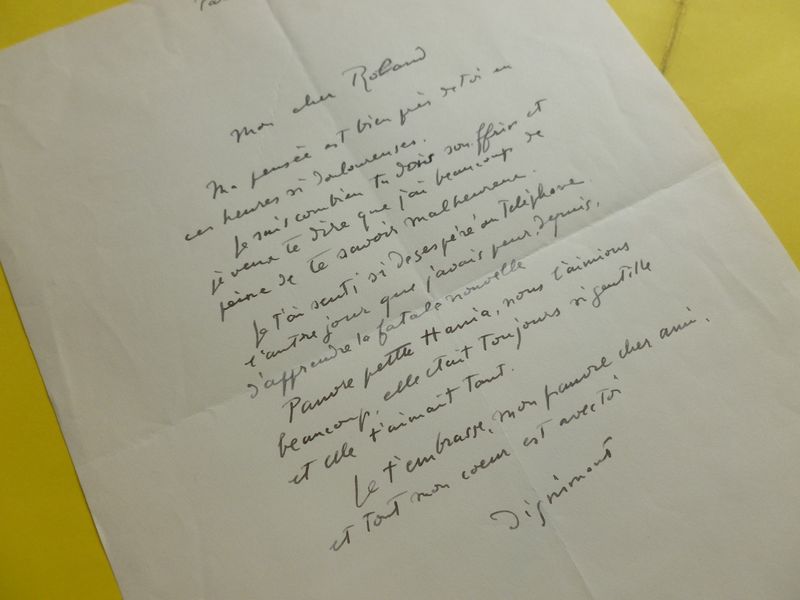 Mon cher Roland
Ma pensée est bien près de toi en
ces heures si douloureuses.
Je sais combien tu dois souffrir et
je veux te dire que j'ai beaucoup de
peine de te savoir malheureux.
Je t'ai senti si désespéré au téléphone
l'autre jour que j'avais peur, depuis,
d'apprendre la fatale nouvelle
Pauvre petite Hania, nous l'aimions
beaucoup, elle était toujours si gentille
et elle t'aimait tant.
Je t'embrasse, mon pauvre cher ami,
et tout mon coeur est avec toi
Dignimont